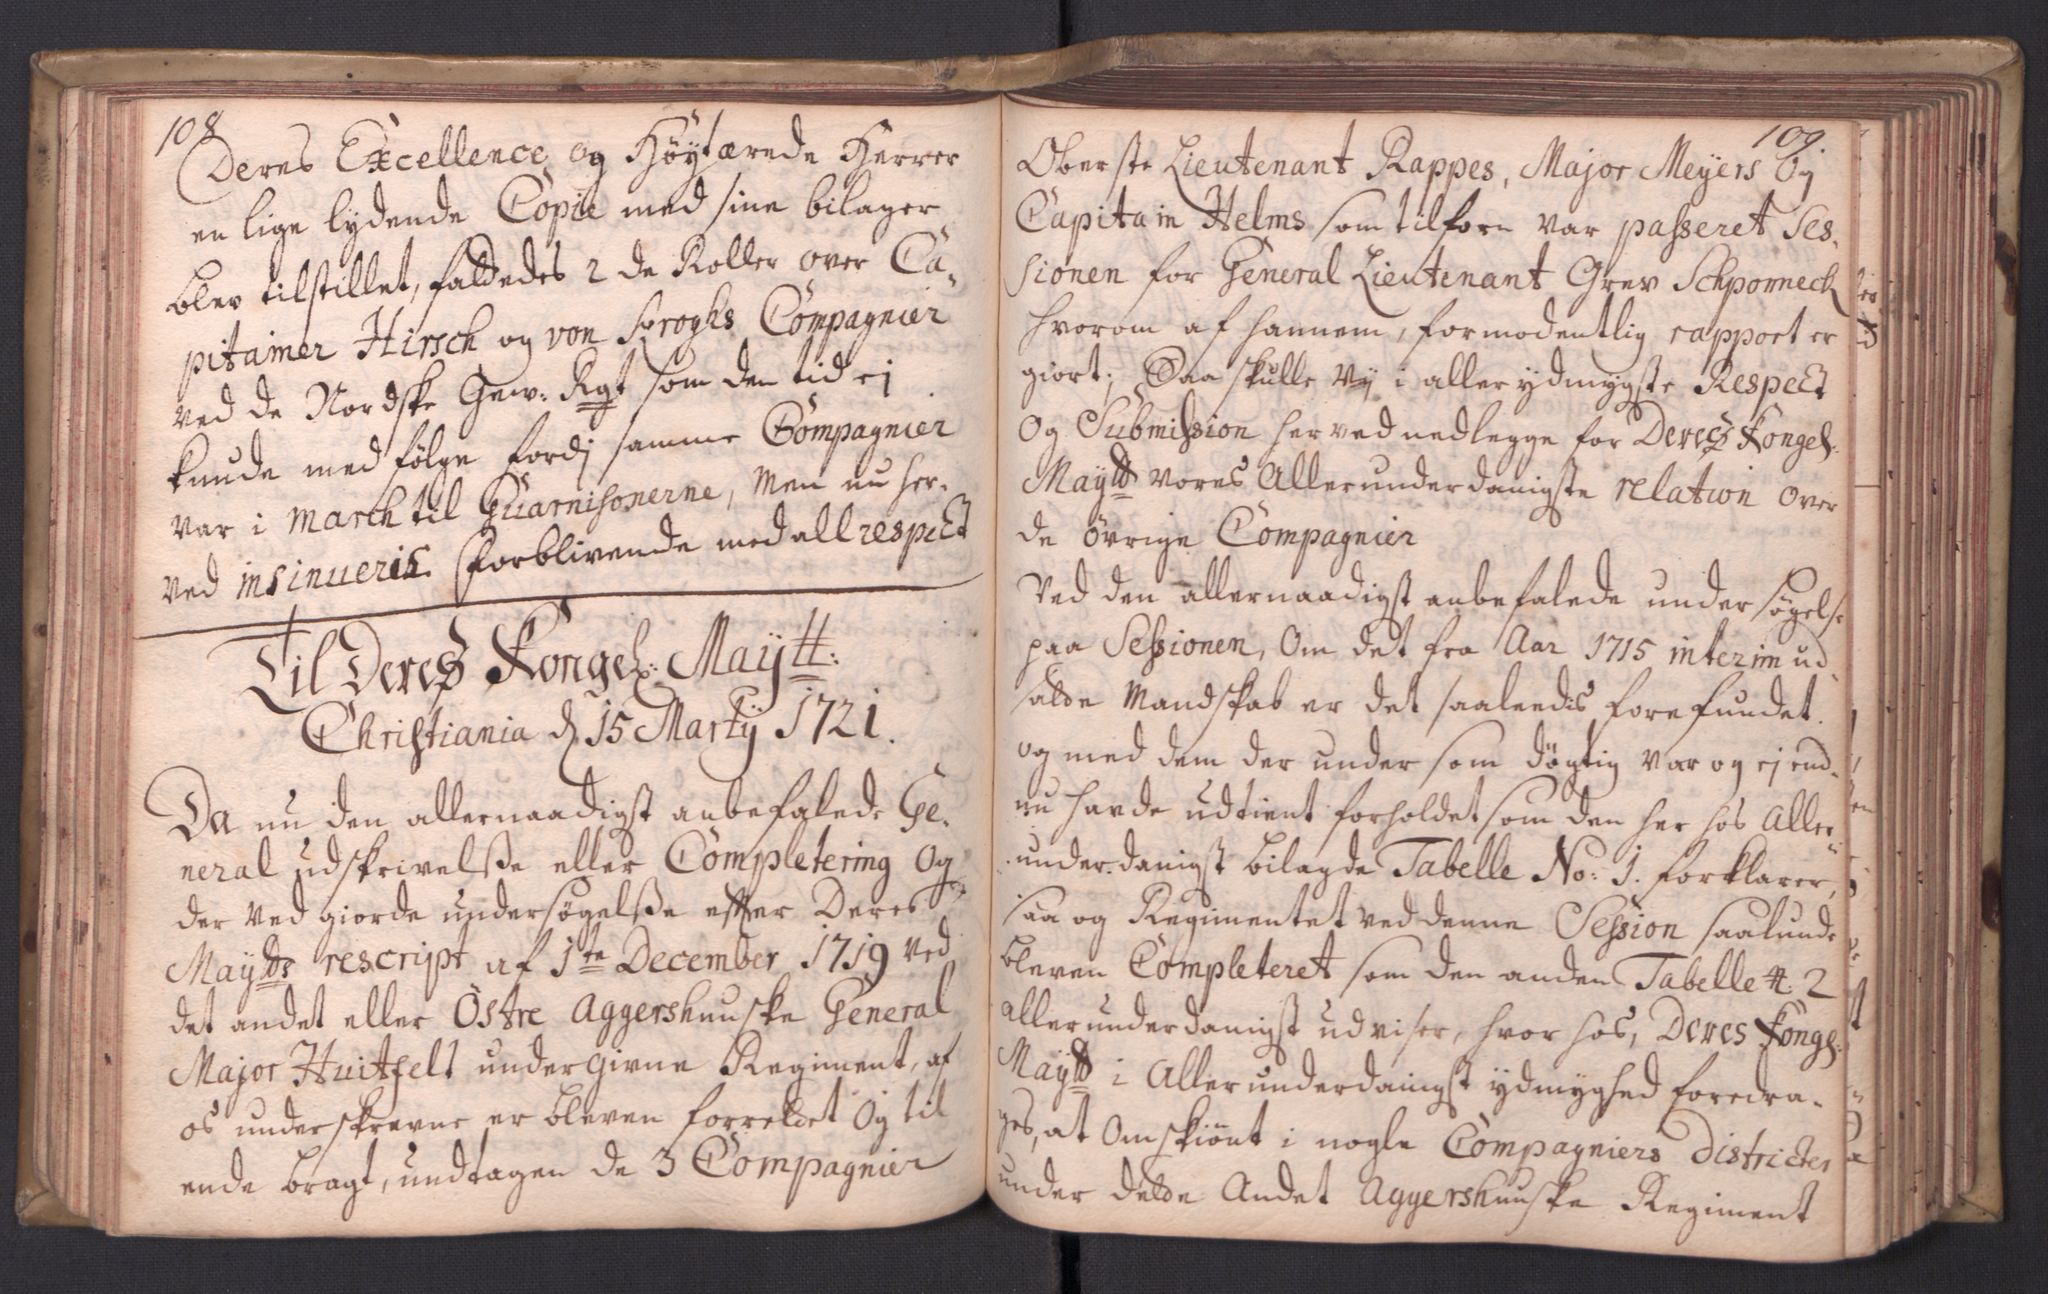 108
Deres Excellence og Höytærede Herrer
en lige lydende Copie med sine bilager
blev tilstillet, fattedes 2 de Roller over Ca-
pitainer Hirsch og von Kroghs Compagnier
ved de Nordske Gew: Rgt som den tid ej
kunde med følge fordj samme Compagnier
var i March til Guarnisonerne, Men nu her-
ved insinueris. forblivende med all respect
Til Deres Kongel: Maytt:
Christiania d 15 Martij 1721.
Da nu den allernaadigst anbefalede Ge-
neral udskrivelsse eller Completering Og
der ved giorde undersøgelsse efter Deres
Maytts rescript af 1te December 1719 ved
det andet eller Östre Aggershuuske General
Major Huitfelt undergivne Regiment, af
os underskrevne er bleven forrettet Og til
ende bragt, undtagen de 3 Compagnier
109.
Oberste Lieutenant Rappes, Major Meyers Og
Capitain Helms som tilforn var passeret Ses-
sionen for General Lieutenant Grev Schponneck
hvorom af hannem, formodentlig rapport er
giort; Saa skulle Vy i aller ydmygste Respect
Og Submission herved nedlegge for Deres Kongel.
Maytt vores Allerunderdanigste relation over
de övrige Compagnier
Ved den allernaadigst anbefalede undersøgelse
paa Sessionen, Om det fra Aar 1715 interim ud-
satte Mandskab er det saaleedis forefundet.
og med dem der under som døgtig var og ej end-
nu havde udtient forholdet som den her hos Aller-
underdanigst bilagde Tabelle No: 1. forklarer,
saa og Regimentet ved denne Session saalunde
bleven Completeret som den anden Tabelle #. 2
allerunderdanigst udviser, hvor hos, Deres Kongl:
Maytt i Allerunderdanigst ydmyghed foredra-
ges, at Omskiönt i nogle Compagniers Districter
under dette Andet Aggershuuske Regiment